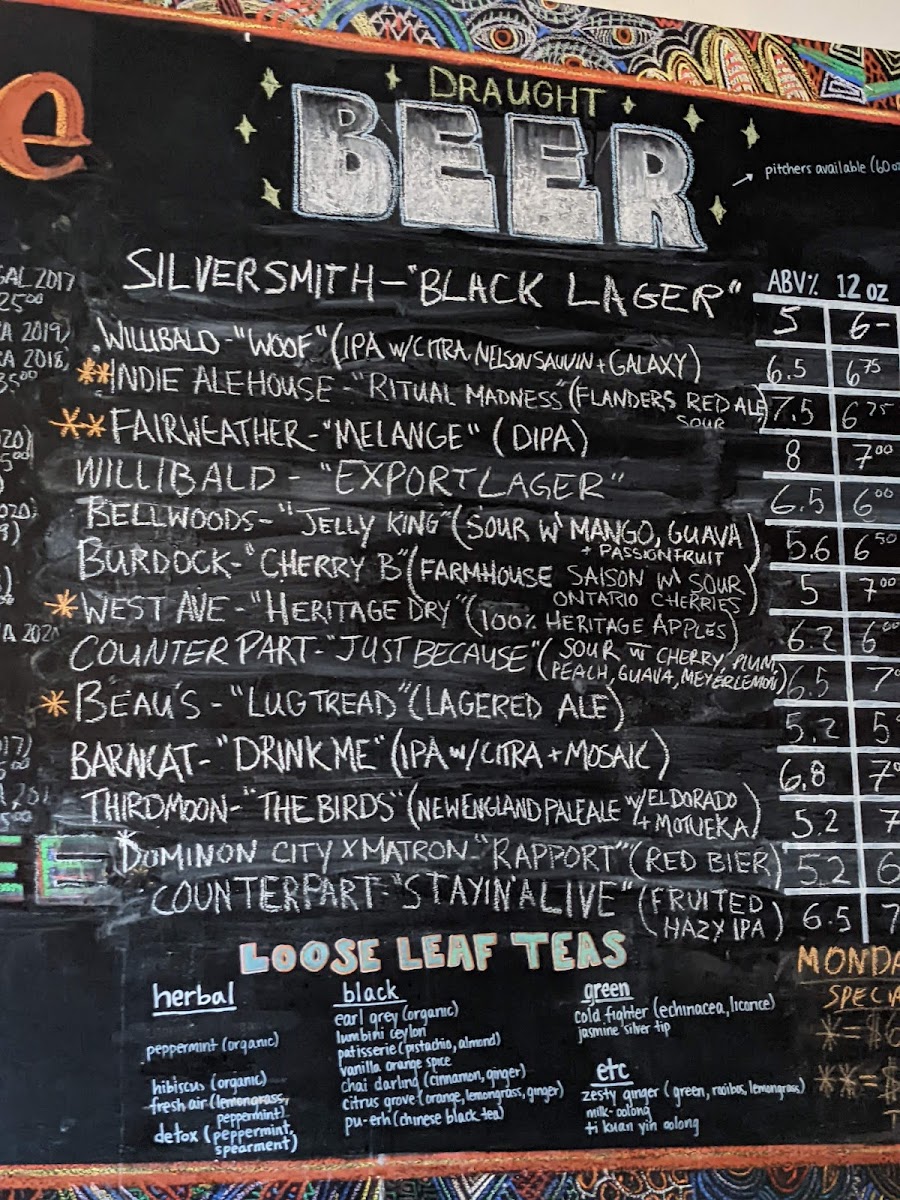 e
DRAUGHT
BEER
pitchers available (60 oz
ABV% 12 oz
SILVERSMITH - "BLACK LAGER" 5 6-
WILLIBALD - "WOOF" (IPA W/ CITRA, NELSON SAUVIN + GALAXY) 6.5 6 75
**INDIE ALEHOUSE - "RITUAL MADNESS" (FLANDERS RED ALE 7.5 6 75
SOUR
**FAIRWEATHER - "MELANGE" (DIPA) 8 7 00
WILLIBALD - "EXPORT LAGER" 6.5 6 00
BELLWOODS - "JELLY KING" (SOUR W/ MANGO, GUAVA 5.6 6 50
+ PASSIONFRUIT)
BURDOCK - "CHERRY B" (FARMHOUSE SAISON W/ SOUR 5 7 00
ONTARIO CHERRIES)
*WEST AVE - "HERITAGE DRY" (100% HERITAGE APPLES) 6.2 6 00
COUNTER PART - "JUST BECAUSE" (SOUR W/ CHERRY, PLUM, 6.5 7
PEACH, GUAVA, MEYER LEMON)
*BEAU'S - "LUGTREAD" (LAGERED ALE) 5.2 5
BARAKAT - "DRINK ME" (IPA W/ CITRA + MOSAIC) 6.8 7
THIRD MOON - "THE BIRDS" (NEW ENGLAND PALE ALE W/ EL DORADO 5.2 7
+ MOTUEKA)
*DOMINON CITY X MATRON - "RAPPORT" (RED BIER) 5.2 6
COUNTERPART - "STAYIN' ALIVE" (FRUITED 6.5 7
HAZY IPA)
GAL 2017
25 00
A 2019)
CA 2018)
35 00
LOOSE LEAF TEAS
herbal
peppermint (organic)
hibiscus (organic)
fresh air (lemongrass,
peppermint)
detox (peppermint,
spearmint)
black
earl grey (organic)
lumbini ceylon
patisserie (pistachio, almond)
vanilla orange spice
chai darling (cinnamon, ginger)
citrus grove (orange, lemongrass, ginger)
pu-erh (chinese black tea)
green
cold fighter (echinacea, licorice)
jasmine silver tip
etc
zesty ginger (green, rooibos, lemongrass)
milk-oolong
ti kuan yin oolong
MONDA
SPECIA
*=$6
**=$
T